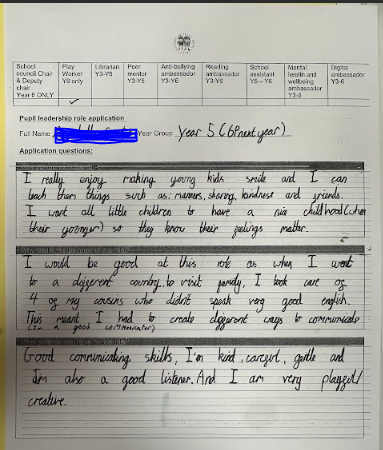 School council Chair & Deputy chair Year 6 ONLY
Play Worker Y6 only
Librarian Y3-Y6
Peer mentor Y3-Y5
Anti-bullying ambassador Y3-Y6
Reading ambassador Y3-Y6
School assistant Y5 – Y6
Mental health and wellbeing ambassador Y3-6
Digital ambassador Y3-6
Pupil leadership role application
Full Name Year Group year 5 (6P next year)
Application questions:
I really enjoy making young kids smile and I can
teach them things such as: manners, sharing, kindness and friends.
I want all little children to have a nice childhood (when
their younger) so they know their feelings matter.
I would be good at this role as when I went
to a different country, to visit family, I took care of
4 of my cousins who didn't speak very good english.
This meant I had to create different ways to communicate
(I'm a good communicator)
Good communicating skills, I'm kind, careful, gentle and
Im also a good listener. And I am very playful/
creative.